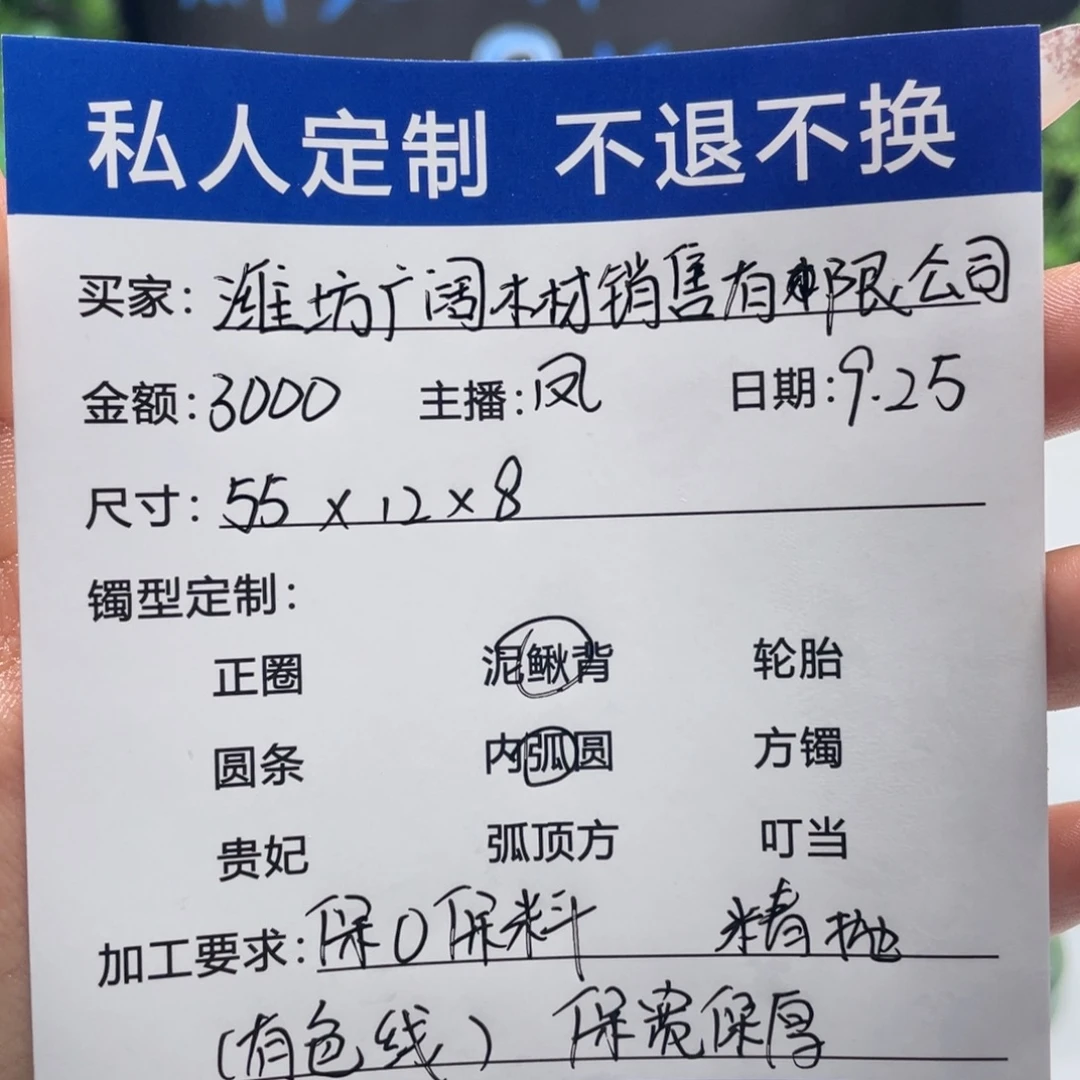 私人定制 不退不换
买家：潍坊广阔木材销售有限公司
金额：3000 主播：凤 日期：9.25
尺寸：55×12×8
镯型定制：
正圈 泥鳅背 轮胎
圆条 内弧圆 方镯
贵妃 弧顶方 叮当
加工要求：保0保料 精抛
（有色线） 保宽保厚